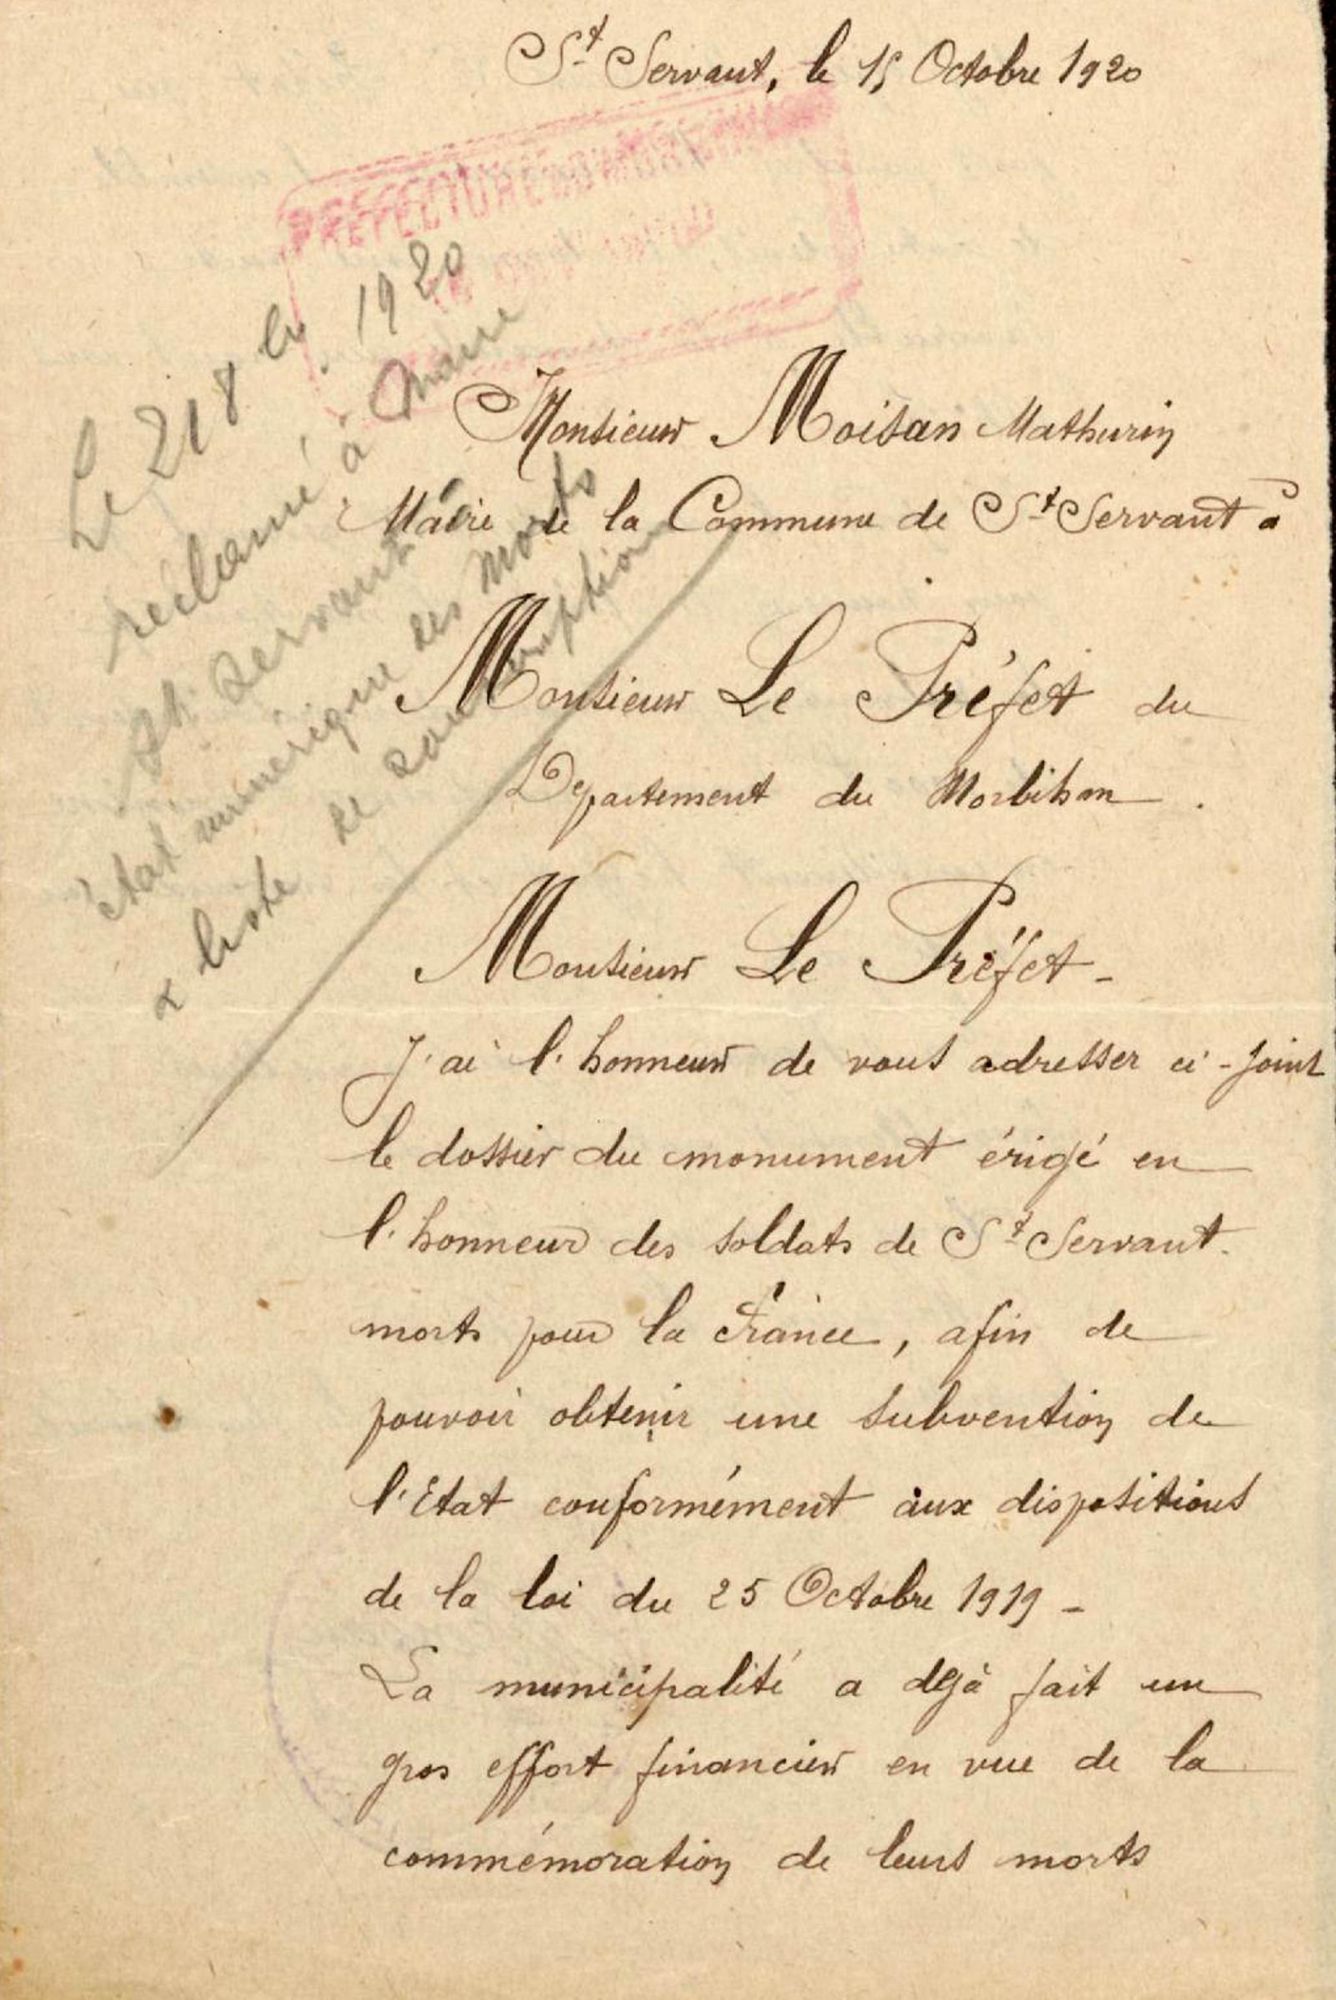 St Servant, le 15 Octobre 1920
PREFECTURE DU MORBIHAN
Le 21 8bre 1920
réclamé à Maire
St. Servant
état numérique des Morts
& liste de souscription
Monsieur Moisan Mathurin
Maire de la Commune de St Servant à
Monsieur Le Préfet du
Departement du Morbihan.
Monsieur Le Préfet -
J'ai l'honneur de vous adresser ci-joint
le dossier du monument érigé en
l'honneur des soldats de St Servant
morts pour la France, afin de
pouvoir obtenir une subvention de
l'Etat conformément aux dispositions
de la loi du 25 Octobre 1919 -
La municipalité a déjà fait un
gros effort financier en vue de la
commémoration de leurs morts